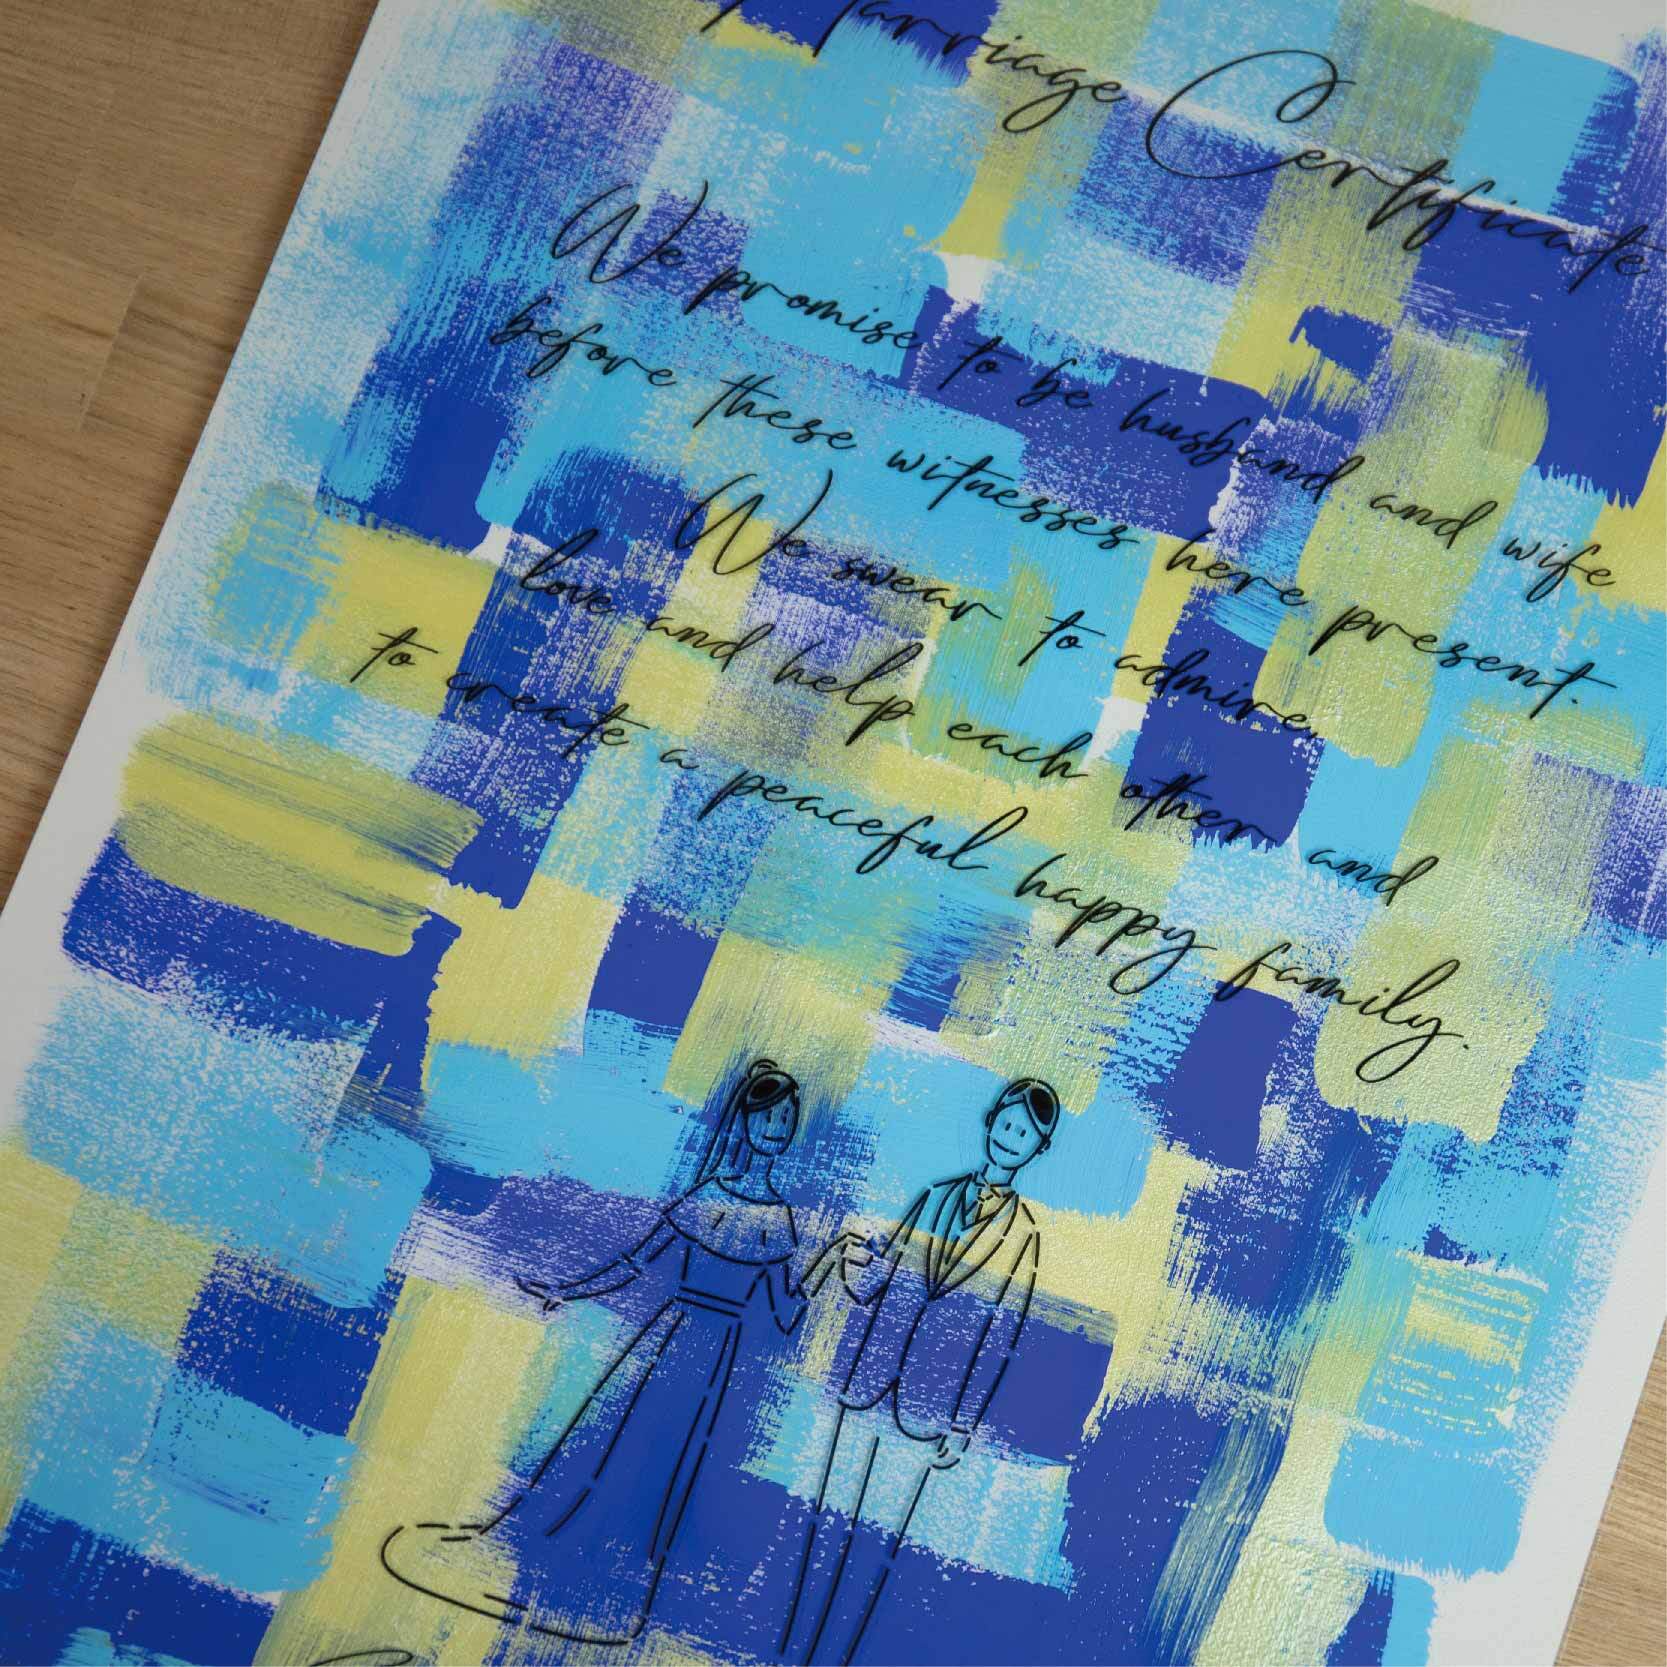 Marriage Certificate
We promise to be husband and wife
before these witnesses here present.
We swear to admire,
love and help each other and
to create a peaceful happy family.